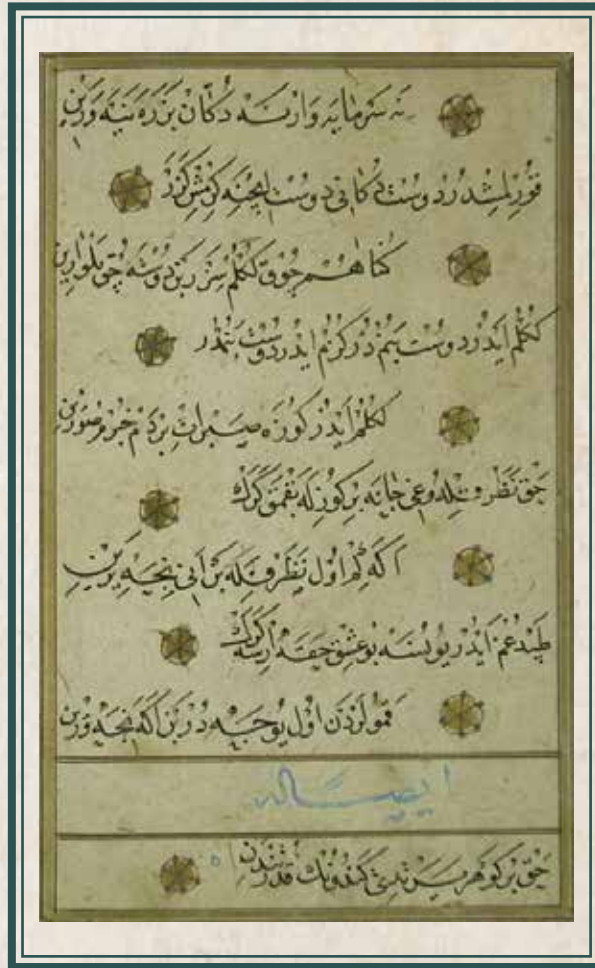 نه سرمایه وار نسه دكان بزره نیه ورین
قورلمشدر دوست دكانی دوست ایچنه كرمش كزر
كناهم چوق ككلم سزر بن دوسته چق یلوارین
ككلم ایدر دوست بنمدر كزم ایدر دوست بنمدر
ككلم ایدر كوزه صبر ات بردم خبر صورین
حق نظر قلدوغی جانه بر كوزله بقمق كرك
اكه كم اول نظر قله بن انی نیجه یرین
طپدغم ایدر یونسه بو عشق حقه ارسه كرك
قمولردن اول یوجه در بن اكه نیجه ورین
حق بر كوهر یرتدی كندونك قدرتندن